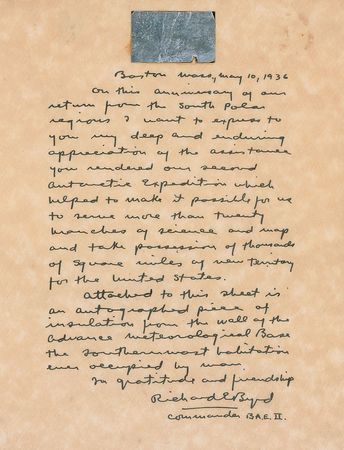 Boston Mass, May 10, 1936
On this anniversary of our
return from the South Polar
regions I want to express to
you my deep and enduring
appreciation of the assistance
you rendered our second
Antarctic Expedition which
helped to make it possible for us
to serve more than twenty
branches of science and map
and take possession of thousands
of square miles of new territory
for the United States.
Attached to this sheet is
an autographed piece of
insulation from the wall of the
Advance Meteorological Base
the southernmost habitation
ever occupied by man.
In gratitude and friendship
Richard E Byrd
Commander B.A.E. II.